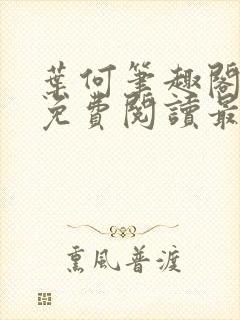 葉何筆趣閣
免費閱讀最
熏風普渡